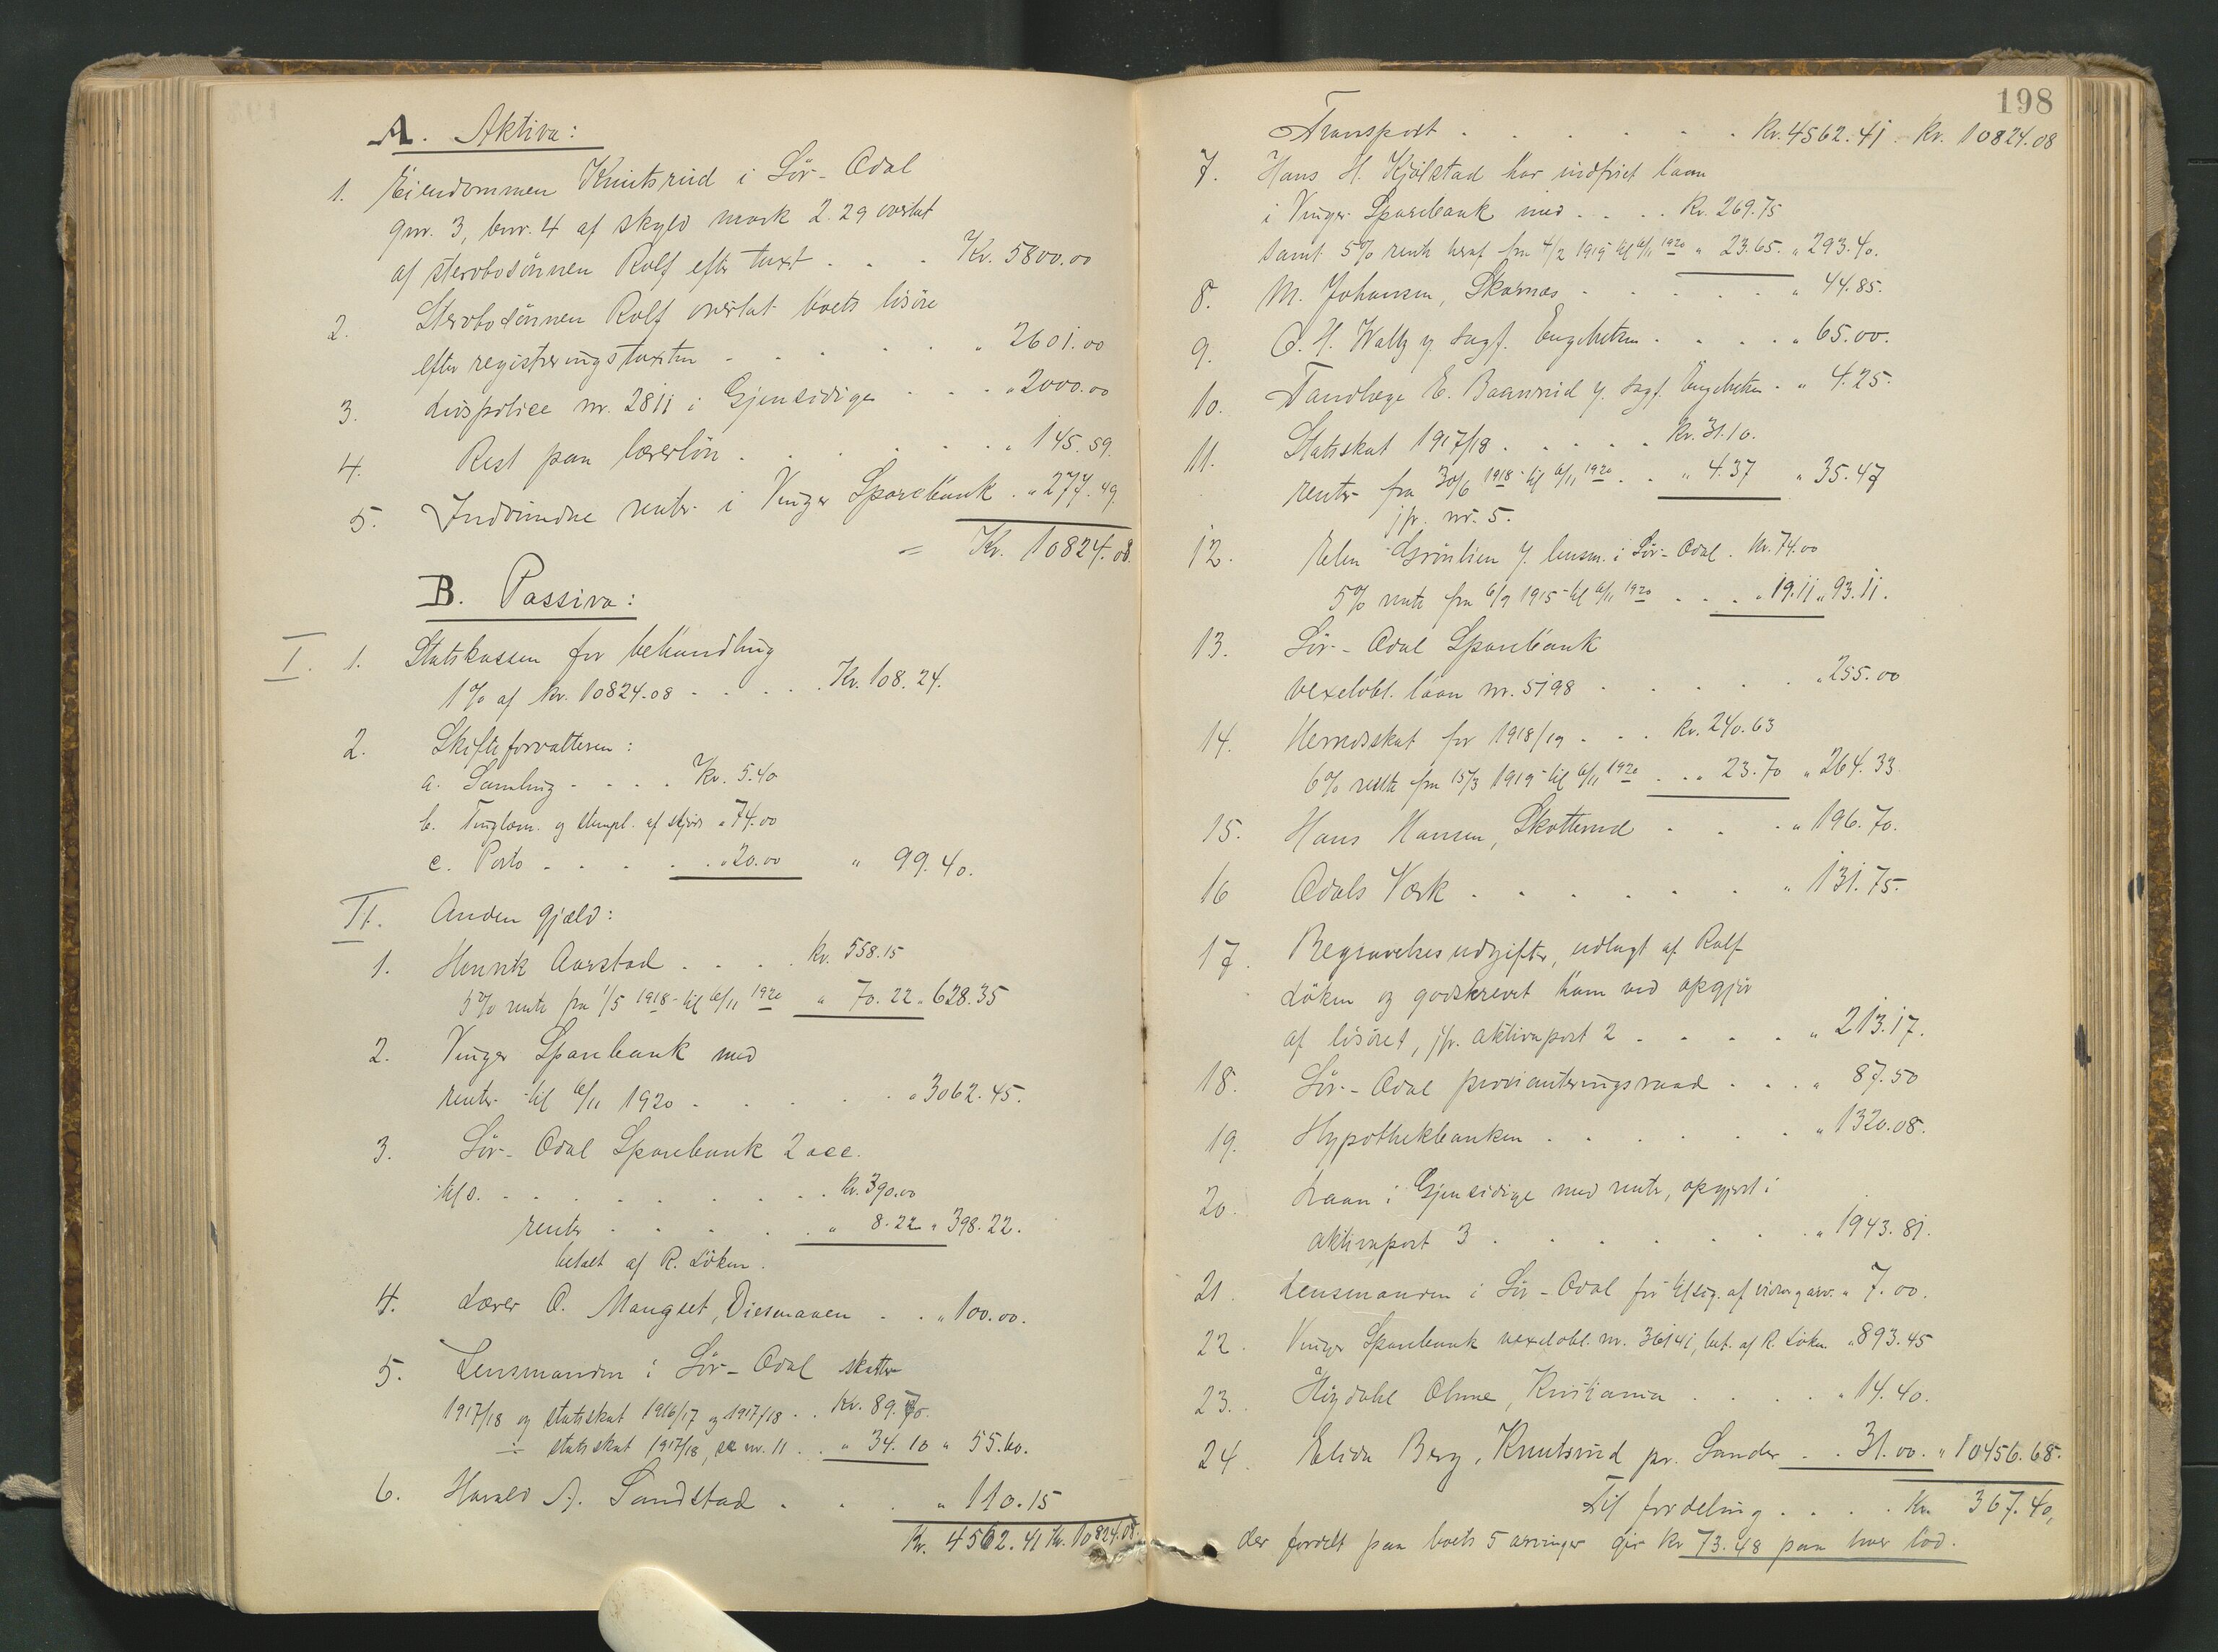 A. Aktiva:
1. Eiendommen Knutsrud i Sör-Odal
gnr. 3, bnr. 4 af skyld mark 2.29 overtat
af stervbosönnen Rolf efter taxt . . . Kr. 5800.00
2. Stervbosönnen Rolf overtat boets lösöre
efter registreringstaxten . . . . . " 2601.00
3. Livspolice nr. 2811 i Gjensidige . . . " 2000.00
4. Rest paa lærerlön . . . . . . " 145.59.
5. Indvundne renter i Vinger Sparebank . " 277.49.
= Kr. 10824.08.
B. Passiva:
I. 1. Statskassen for behandling
1% af kr. 10824.08 . . . . . Kr. 108.24.
2. Skifteforvalteren:
a. Samling . . . . Kr. 5.40
b. Tinglæsn. og stempl. af skjöde " 74.00
c. Porto . . . . . . " 20.00 " 99.40.
II. Anden gjæld:
1. Henrik Aarstad . . . . Kr. 558.15
5% rente fra 1/5 1918 til 6/11 1920 " 70.22 " 628.35
2. Vinger Sparebank med
renter til 6/11 1920 . . . . . . " 3062.45.
3. Sör-Odal Sparebank 2 acc.
tils. . . . . . . . . . . Kr. 390.00
renter . . . . . . " 8.22 " 398.22.
betalt af R. Löken.
4. Lærer O. Mangset, Disenaaen . . " 100.00.
5. Lensmanden i Sör-Odal skatter
1917/18 og statsskat 1916/17 og 1917/18 . . Kr. 89.70.
÷ statsskat 1917/18, se nr. 11 . . " 34.10 " 55.60.
6. Harald A. Sandstad . . . . " 110.15
Kr. 4562.41 Kr. 10824.08.
198
Transport . . . . . . . Kr. 4562.41. Kr. 10824.08
7. Hans H. Kjölstad har indfriet laan
i Vinger Sparebank med . . . . Kr. 269.75
samt 5% rente heraf fra 4/2 1919 til 6/11 1920 " 23.65. " 293.40.
8. M. Johansen, Skarnes . . . . . . " 44.85.
9. O. H. Waltz v. sagf. Engebretsen . . . . " 65.00.
10. Tandlæge E. Baanrud v. sagf. Engebretsen . " 4.25.
11. Statsskat 1917/18 . . . . . Kr. 31.10.
renter fra 30/6 1918 til 6/11 1920 . . " 4.37 " 35.47
jfr. nr. 5.
12. Elen Grönlien v. lensm. i Sör-Odal . Kr. 74.00
5% rente fra 6/9 1915 til 6/11 1920 . . . " 19.11 " 93.11.
13. Sör-Odal Sparebank
vexelobl. laan nr. 5198 . . . . . " 255.00
14. Herredsskat for 1918/19 . . . Kr. 240.63
6% rente fra 15/3 1919 til 6/11 1920 . . " 23.70 " 264.33
15. Hans Hansen, Skotterud . . . " 196.70.
16 Odals Værk . . . . . . . " 131.75.
17. Begravelsesudgifter, udlagt af Rolf
Löken og godskrevet ham ved opgjör
af lösöret, jfr. aktivapost 2 . . . . " 213.17.
18. Sör-Odal provianteringsraad . . . " 87.50
19. Hypothekbanken . . . . . . " 1320.08.
20. Laan i Gjensidige med rente, opgjort i
aktivapost 3 . . . . . . . " 1943.81.
21. Lensmanden i Sör-Odal for tilsig. af " 7.00.
22. Vinger Sparebank vexelobl. nr. 36141, bet. af R. Löken " 893.45
23. Höydahl Ohme, Kristiania . . . . " 14.40.
24. Elida Berg, Knutsrud pr. Sander . . 31.00. " 10456.68.
Til fordeling . . . . Kr. 367.40,
der fordelt paa boets 5 arvinger gir kr 73.48 paa hver lod.